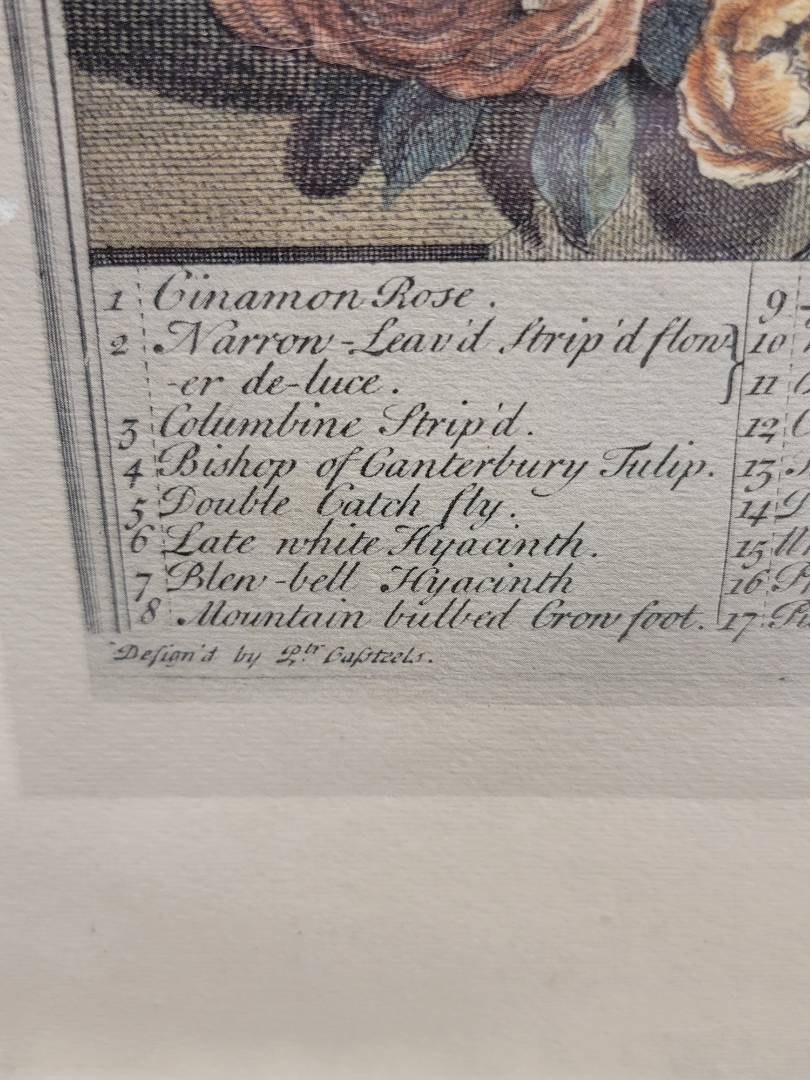 1 Cinamon Rose.
2 Narrow-Leav'd Strip'd flow
-er de-luce.
3 Columbine Strip'd.
4 Bishop of Canterbury Tulip.
5 Double Catch fly.
6 Late white Hyacinth.
7 Blew-bell Hyacinth
8 Mountain bulbed Crow foot.
Deſign'd by Ptr. Caſteels.
9
10
11
12
13
14
15
16
17